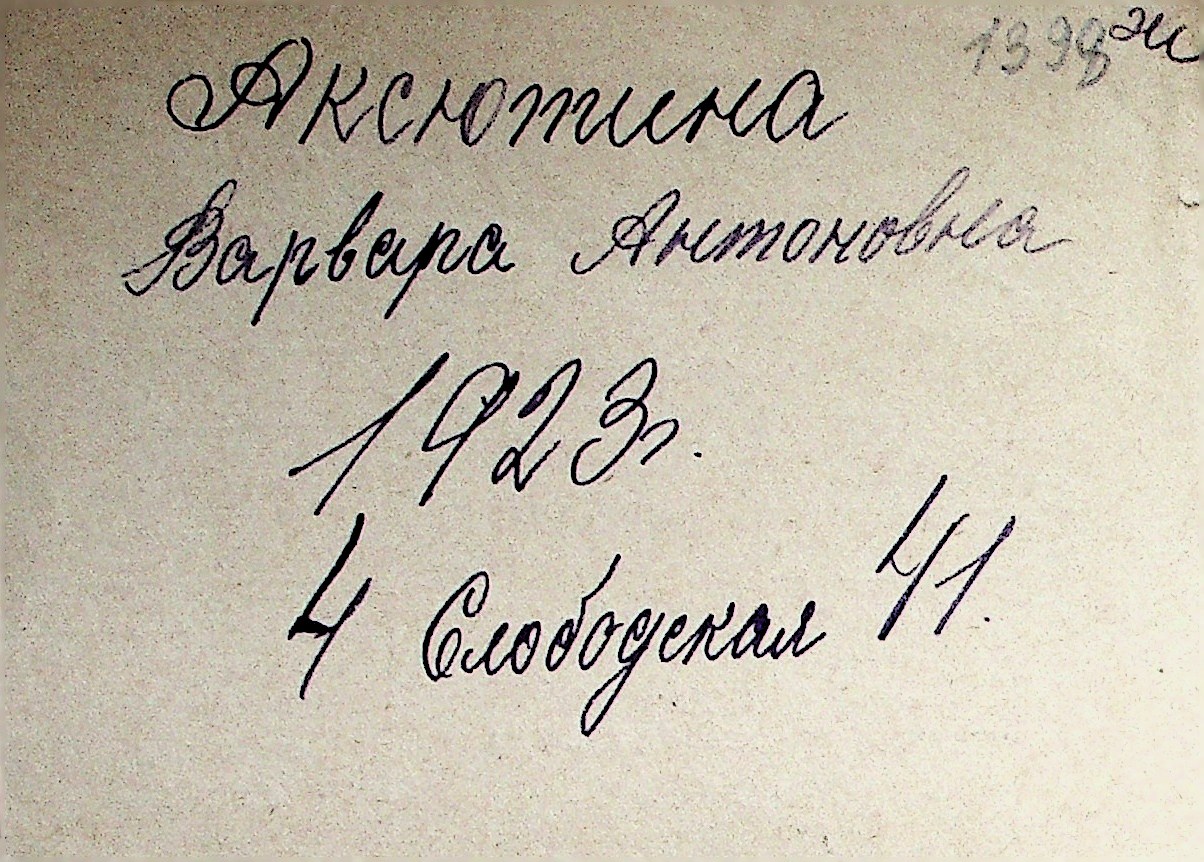 1398 эи
Аксютина
Варвара Антоновна
1923г.
4 Слободская 41.